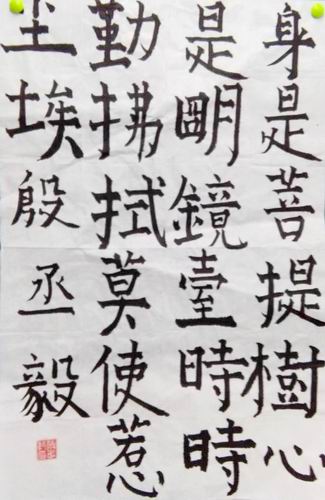 身是菩提樹心
是明鏡臺時時
勤拂拭莫使惹
尘埃殷丞毅